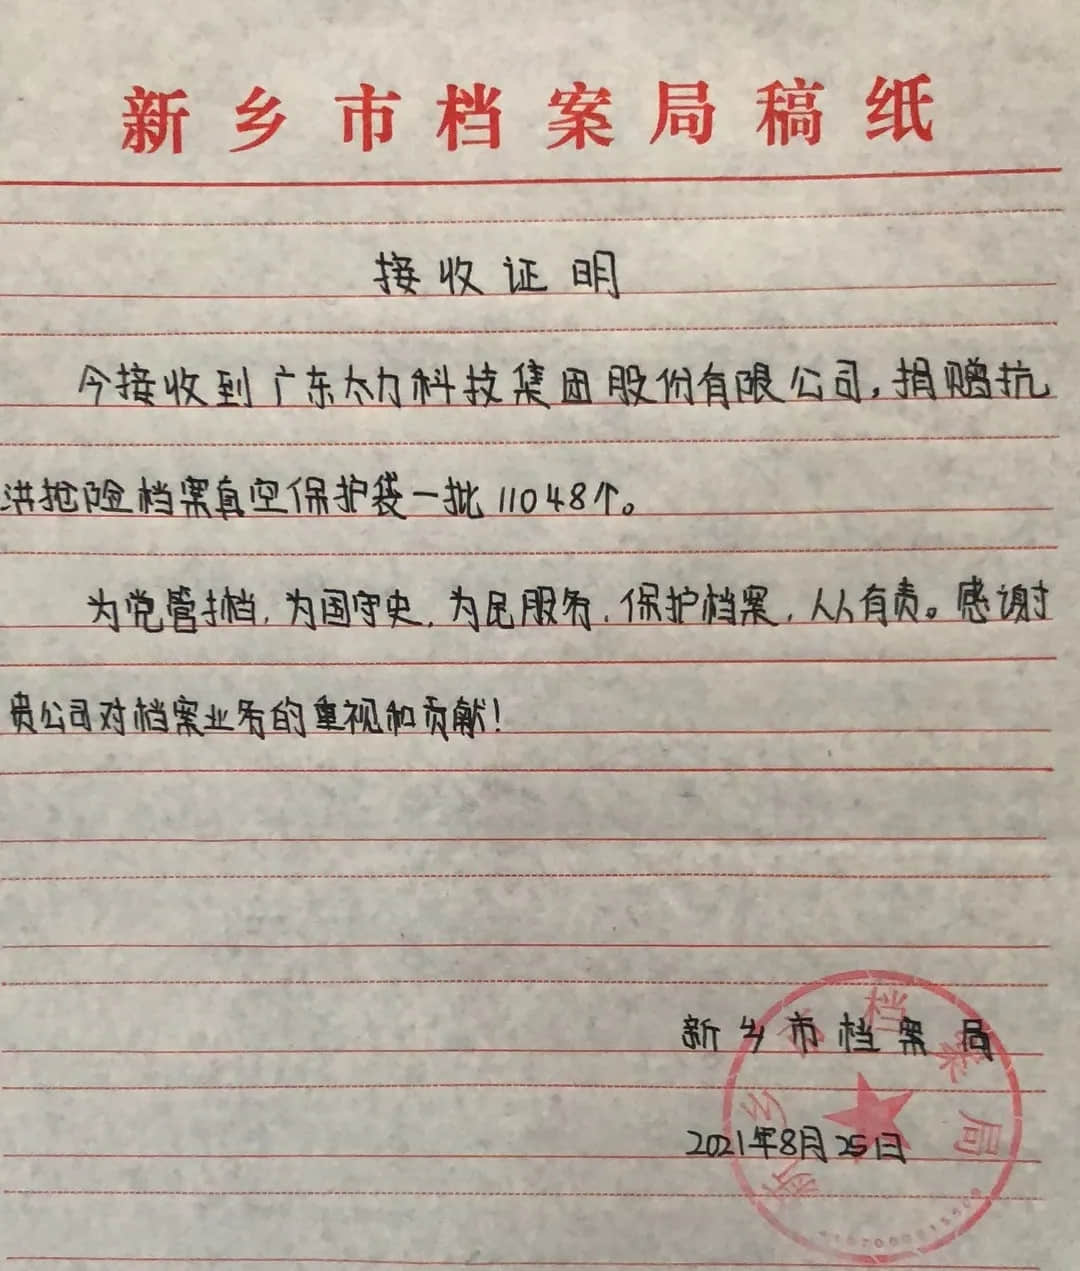 新乡市档案局稿纸
接收证明
今接收到广东太力科技集团股份有限公司，捐赠抗
洪抢险档案真空保护袋一批11048个。
为党管档，为国守史，为民服务，保护档案，人人有责。感谢
贵公司对档案业务的重视和贡献！
新乡市档案局
2021年8月25日
新乡市档案局